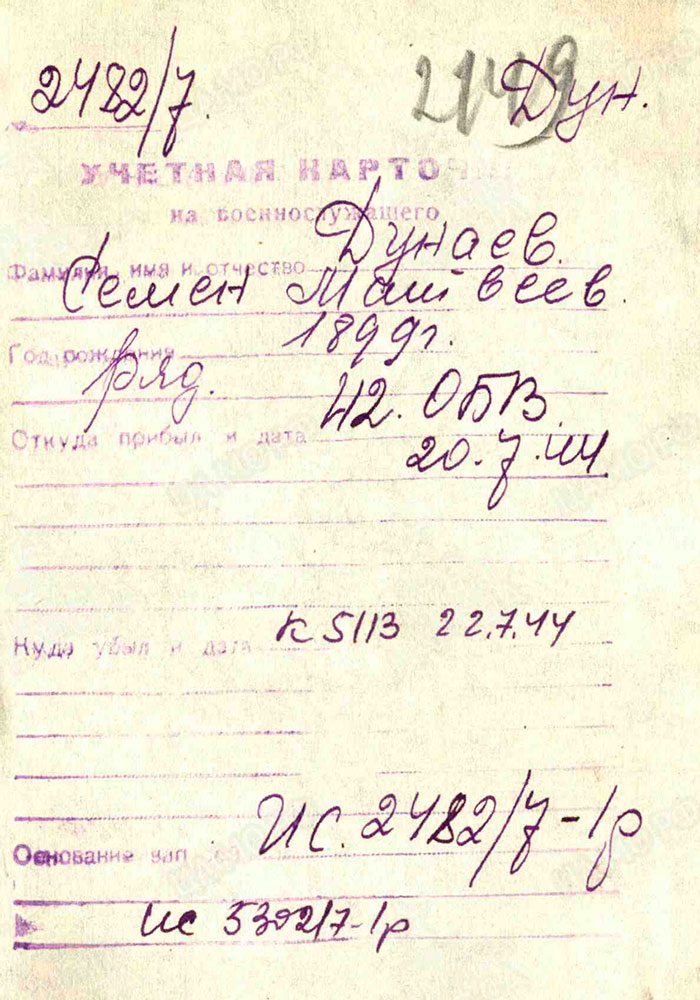 2482/7.
Дун.
УЧЕТНАЯ КАРТОЧКА
на военнослужащего
Дунаев.
Фамилия, имя и отчество
Семен Матвеев.
1899г.
Год рождения
ряд.
42. ОБВ.
Откуда прибыл и дата
20.7.44
к 5113 22.7.44
Куда убыл и дата
ис. 2482/7-1р
Основание зап
ис 5392/7-1р